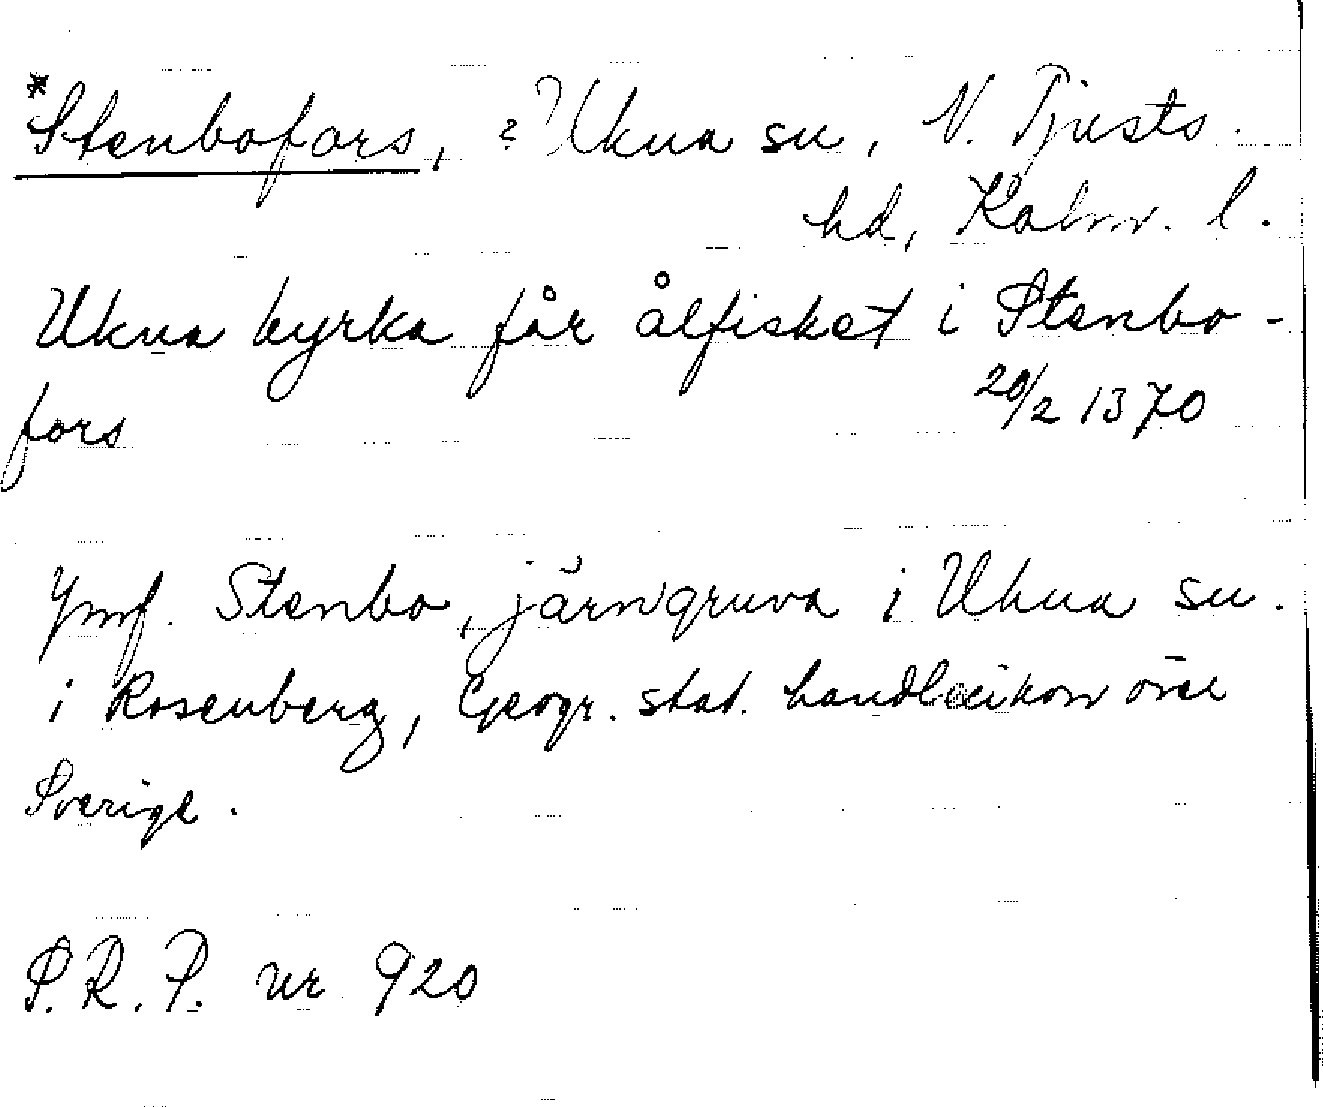 *Stenbofors, ? Ukna sn, N. Tjusts
hd, Kalm. l.
Ukna kyrka får ålfisket i Stenbo-
fors 20/2 1370
Jmf. Stenbo, järngruva i Ukna sn.
i Rosenberg, Geogr. stat. handlexikon över
Sverige.
S.R.P. nr 920